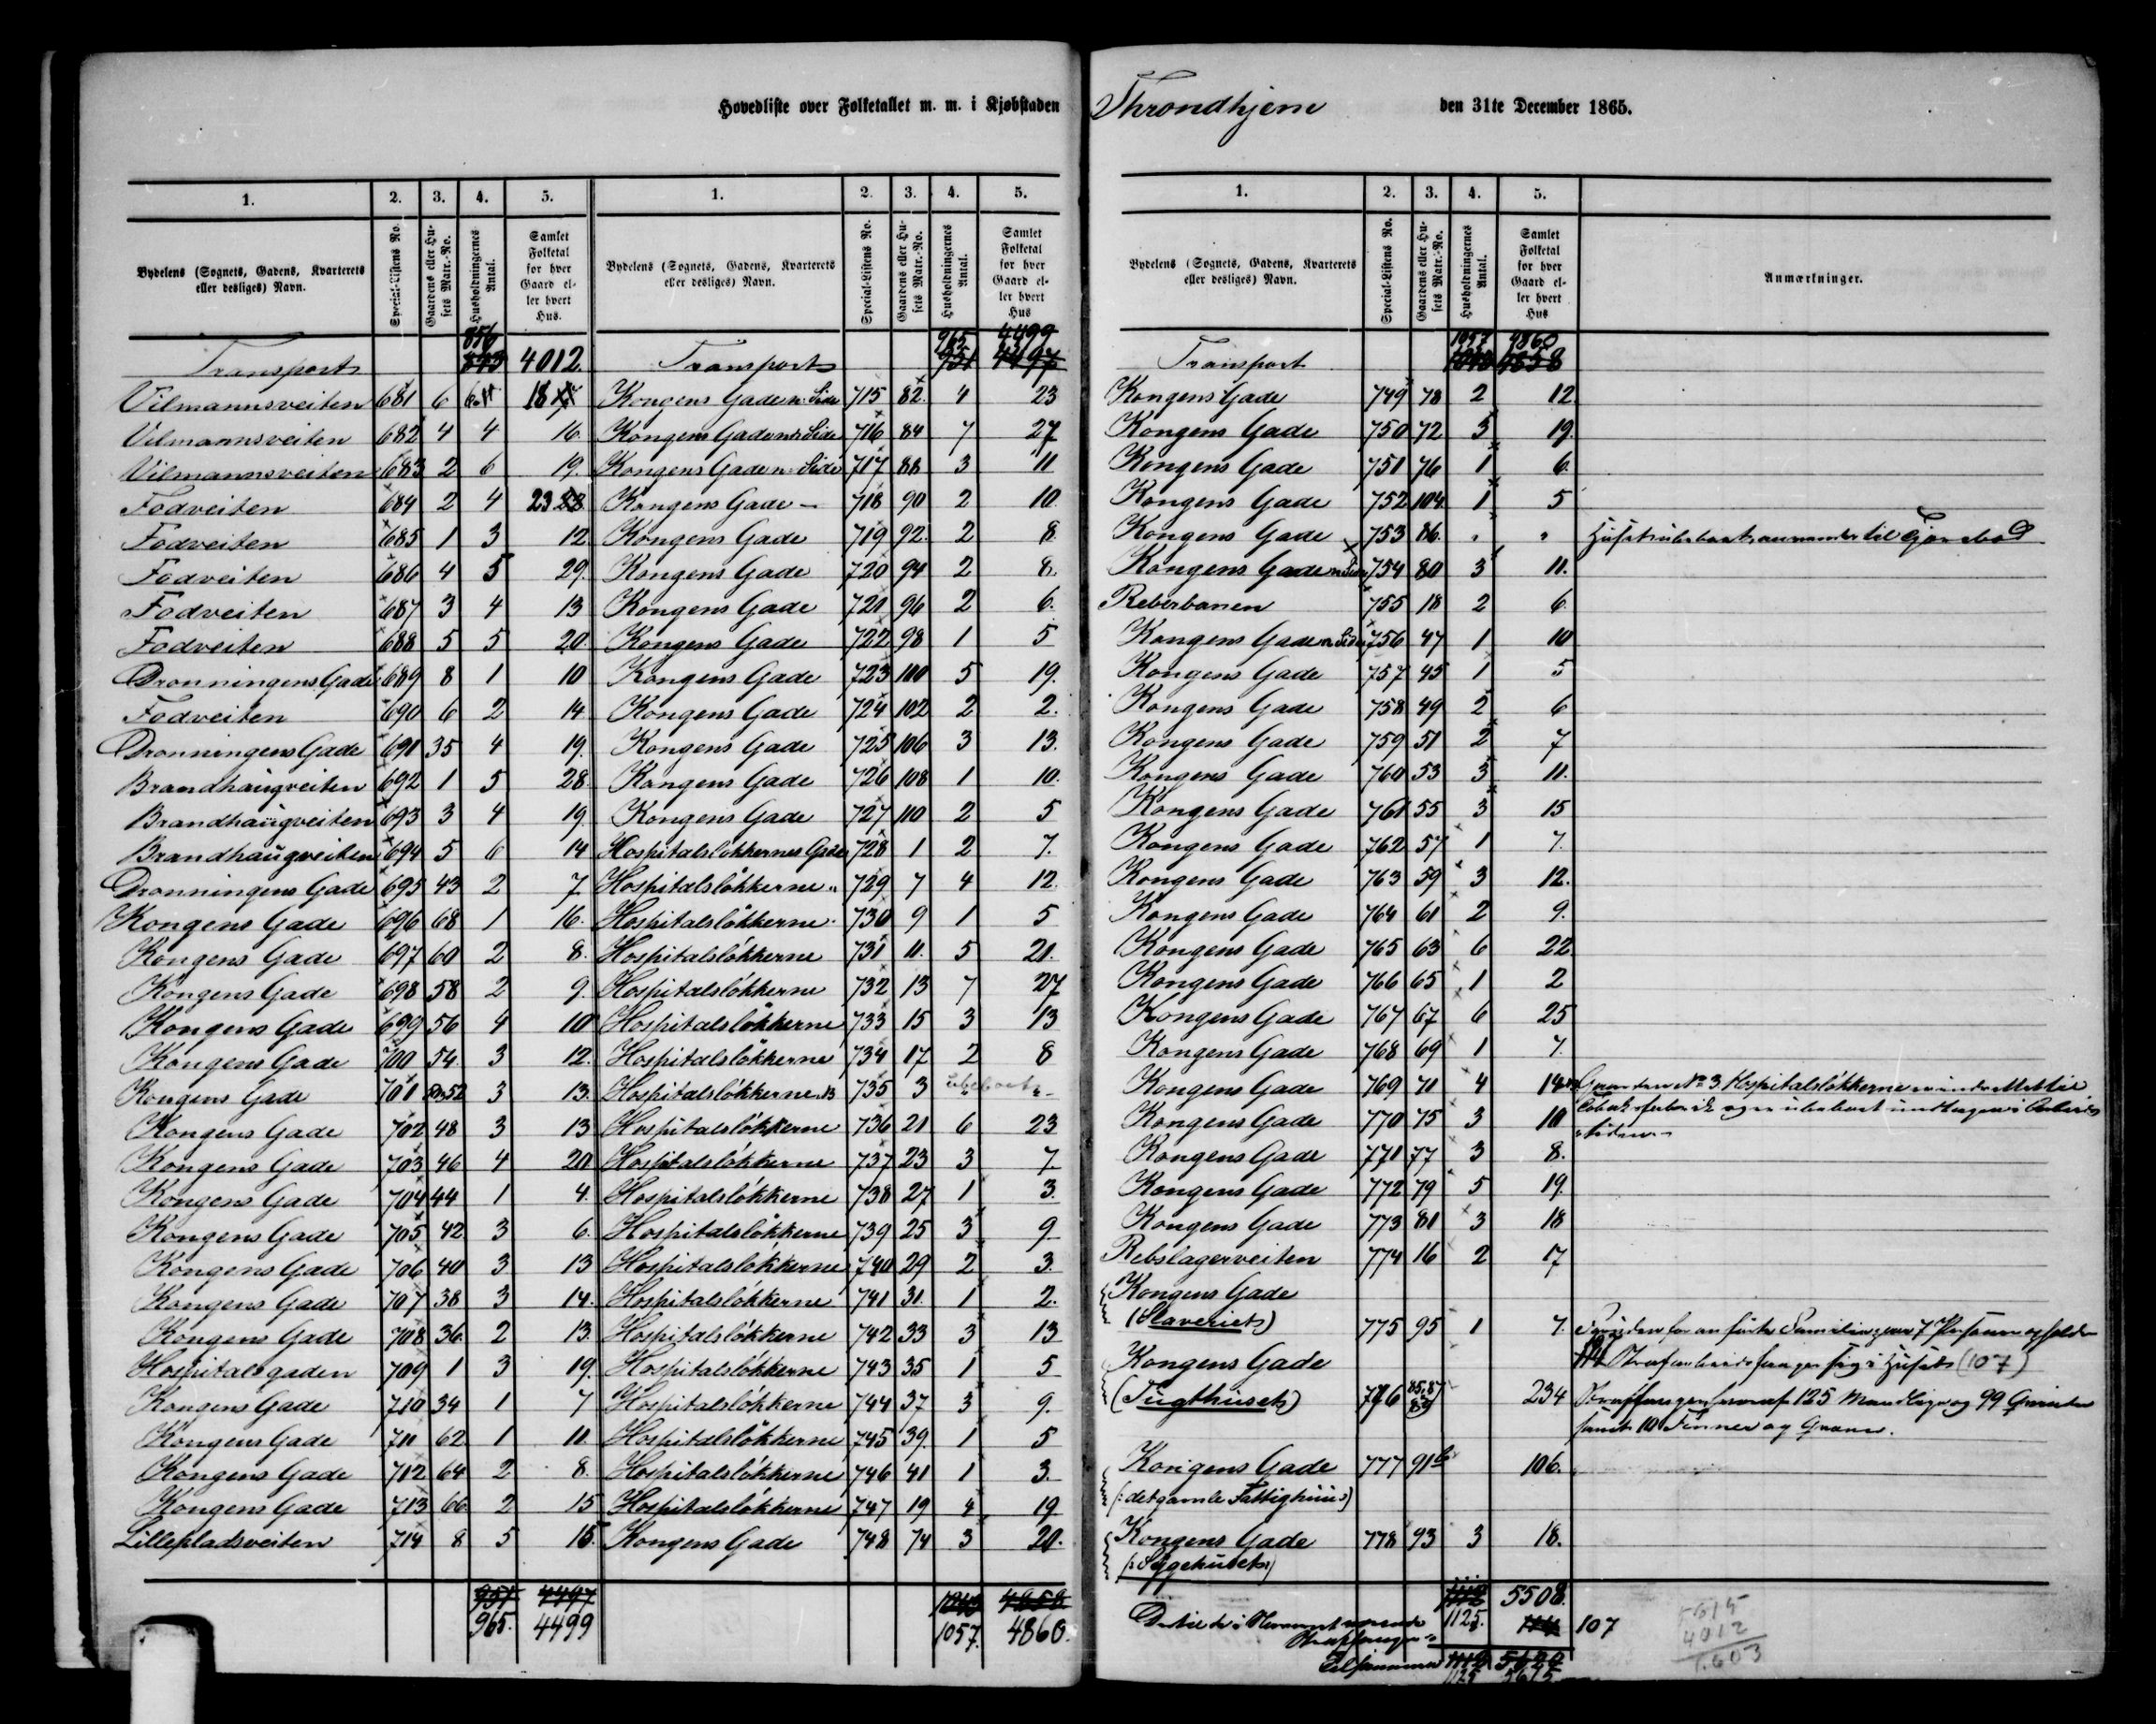 Hovedliste over Folketallet m. m. i Kjøbstaden Throndhjem den 31te December 1865.
1. 2. 3. 4. 5. 1. 2. 3. 4. 5.
Bydelens (Sognets, Gadens, Kvarterets eller desliges) Navn. Special-Listens No. Gaardens eller Husets Matr.-No. Husholdningernes Antal. Samlet Folketal for hver Gaard eller hvert Hus. Bydelens (Sognets, Gadens, Kvarterets eller desliges) Navn. Special-Listens No. Gaardens eller Husets Matr.-No. Husholdningernes Antal. Samlet Folketal for hver Gaard eller hvert Hus
856 965 4499
Transport 4012 Transport 951 4497
Vilmannsveiten 681 6 6 18 Kongens Gade n. Side 715 82 4 23
Vilmannsveiten 682 4 4 16 Kongens Gade n. Side 716 84 7 27
Vilmannsveiten 683 2 6 19 Kongens Gade n. Side 717 88 3 11
Fodveiten 684 2 4 23 Kongens Gade - 718 90 2 10
Fodveiten 685 1 3 12 Kongens Gade 719 92 2 8
Fodveiten 686 4 5 29 Kongens Gade 720 94 2 8
Fodveiten 687 3 4 13 Kongens Gade 721 96 2 6
Fodveiten 688 5 5 20 Kongens Gade 722 98 1 5
Dronningens Gade 689 8 1 10 Kongens Gade 723 100 5 19
Fodveiten 690 6 2 14 Kongens Gade 724 102 2 2
Dronningens Gade 691 35 4 19 Kongens Gade 725 106 3 13
Brandhaugveiten 692 1 5 28 Kongens Gade 726 108 1 10
Brandhaugveiten 693 3 4 19 Kongens Gade 727 110 2 5
Brandhaugveiten 694 5 6 14 Hospitalsløkkernes Gade 728 1 2 7
Dronningens Gade 695 43 2 7 Hospitalsløkkerne " 729 7 4 12
Kongens Gade 696 68 1 16 Hospitalsløkkerne 730 9 1 5
Kongens Gade 697 60 2 8 Hospitalsløkkerne 731 11 5 21
Kongens Gade 698 58 2 9 Hospitalsløkkerne 732 13 7 27
Kongens Gade 699 56 4 10 Hospitalsløkkerne 733 15 3 13
Kongens Gade 700 54 3 12 Hospitalsløkkerne 734 17 2 8
Kongens Gade 701 50,52 3 13 Hospitalsløkkerne 735 3 ubeboet
Kongens Gade 702 48 3 13 Hospitalsløkkerne 736 21 6 23
Kongens Gade 703 46 4 20 Hospitalsløkkerne 737 23 3 7
Kongens Gade 704 44 1 4 Hospitalsløkkerne 738 27 1 3
Kongens Gade 705 42 3 6 Hospitalsløkkerne 739 25 3 9
Kongens Gade 706 40 3 13 Hospitalsløkkerne 740 29 2 3
Kongens Gade 707 38 3 14 Hospitalsløkkerne 741 31 1 2
Kongens Gade 708 36 2 13 Hospitalsløkkerne 742 33 3 13
Hospitalsgaden 709 1 3 19 Hospitalsløkkerne 743 35 1 5
Kongens Gade 710 34 1 7 Hospitalsløkkerne 744 37 3 9
Kongens Gade 711 62 1 11 Hospitalsløkkerne 745 39 1 5
Kongens Gade 712 64 2 8 Hospitalsløkkerne 746 41 1 3
Kongens Gade 713 66 2 15 Hospitalsløkkerne 747 19 4 19
Lillepladsveiten 714 8 5 15 Kongens Gade 748 74 3 20
951 4497 1043 4858
965 4499 1057 4860
1. 2. 3. 4. 5.
Bydelens (Sognets, Gadens, Kvarterets eller desliges) Navn. Special-Listens No. Gaardens eller Husets Matr.-No. Husholdningernes Antal. Samlet Folketal for hver Gaard eller hvert Hus Anmærkninger.
1057 4860
Transport 1043 4858
Kongens Gade 749 78 2 12
Kongens Gade 750 72 3 19
Kongens Gade 751 76 1 6
Kongens Gade 752 104 1 5
Kongens Gade 753 86 " " Huset ubeboet, anvendes til
Kongens Gade n. Side 754 80 3 11
Reberbanen 755 18 2 6
Kongens Gade n. Side 756 47 1 10
Kongens Gade 757 45 1 5
Kongens Gade 758 49 2 6
Kongens Gade 759 51 2 7
Kongens Gade 760 53 3 11
Kongens Gade 761 55 3 15
Kongens Gade 762 57 1 7
Kongens Gade 763 59 3 12
Kongens Gade 764 61 2 9
Kongens Gade 765 63 6 22
Kongens Gade 766 65 1 2
Kongens Gade 767 67 6 25
Kongens Gade 768 69 1 7
Kongens Gade 769 71 4 14 Gaarden No 3 Hospitalsløkkerne er indrettet til
Kongens Gade 770 75 3 10 Tobaksfabrik og er ubeboet undtagen i Arbeids
tiden
Kongens Gade 771 77 3 8
Kongens Gade 772 79 5 19
Kongens Gade 773 81 3 18
Rebslagerveiten 774 16 2 17
Kongens Gade
(Slaveriet) 775 95 1 7 Foruden før anførte Familie paa 7 Personer opholder
Kongens Gade 114 Strafarbeidsfanger sig i Huset (107)
(Tugthuset) 776 85,87 89 234 Straffanger hvoraf 125 Mandlige og 99 Qvinder
samt 10
Kongens Gade 777 91b 106
(: det gamle Fattighuus)
Kongens Gade 778 93 3 18
(: Sygehuset)
1112 5508
Dertil de i Slaveriet værende 1125 114 107
Straffanger
Tilsammen 1112 5622
1125 5615
5615
4012
1603